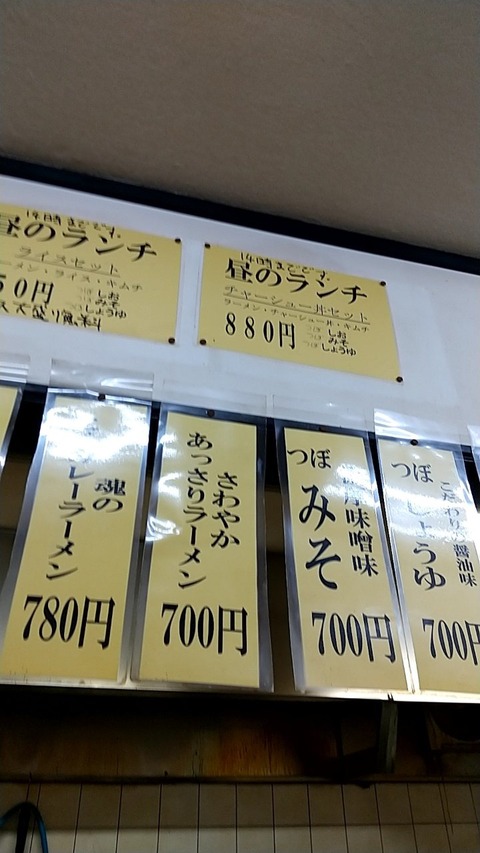 14時までです。
昼のランチ
ライスセット
ーメン・ライス・キムチ
50円
しお
みそ
しょうゆ
14時までです。
昼のランチ
チャーシュー丼セット
ラーメン・チャーシュー丼・キムチ
880円
つぼ しお
つぼ みそ
つぼ しょうゆ
魂の
レーラーメン
780円
さわやか
あっさりラーメン
700円
味噌味
つぼ みそ
700円
こだわりの醤油味
つぼ しょうゆ
700円